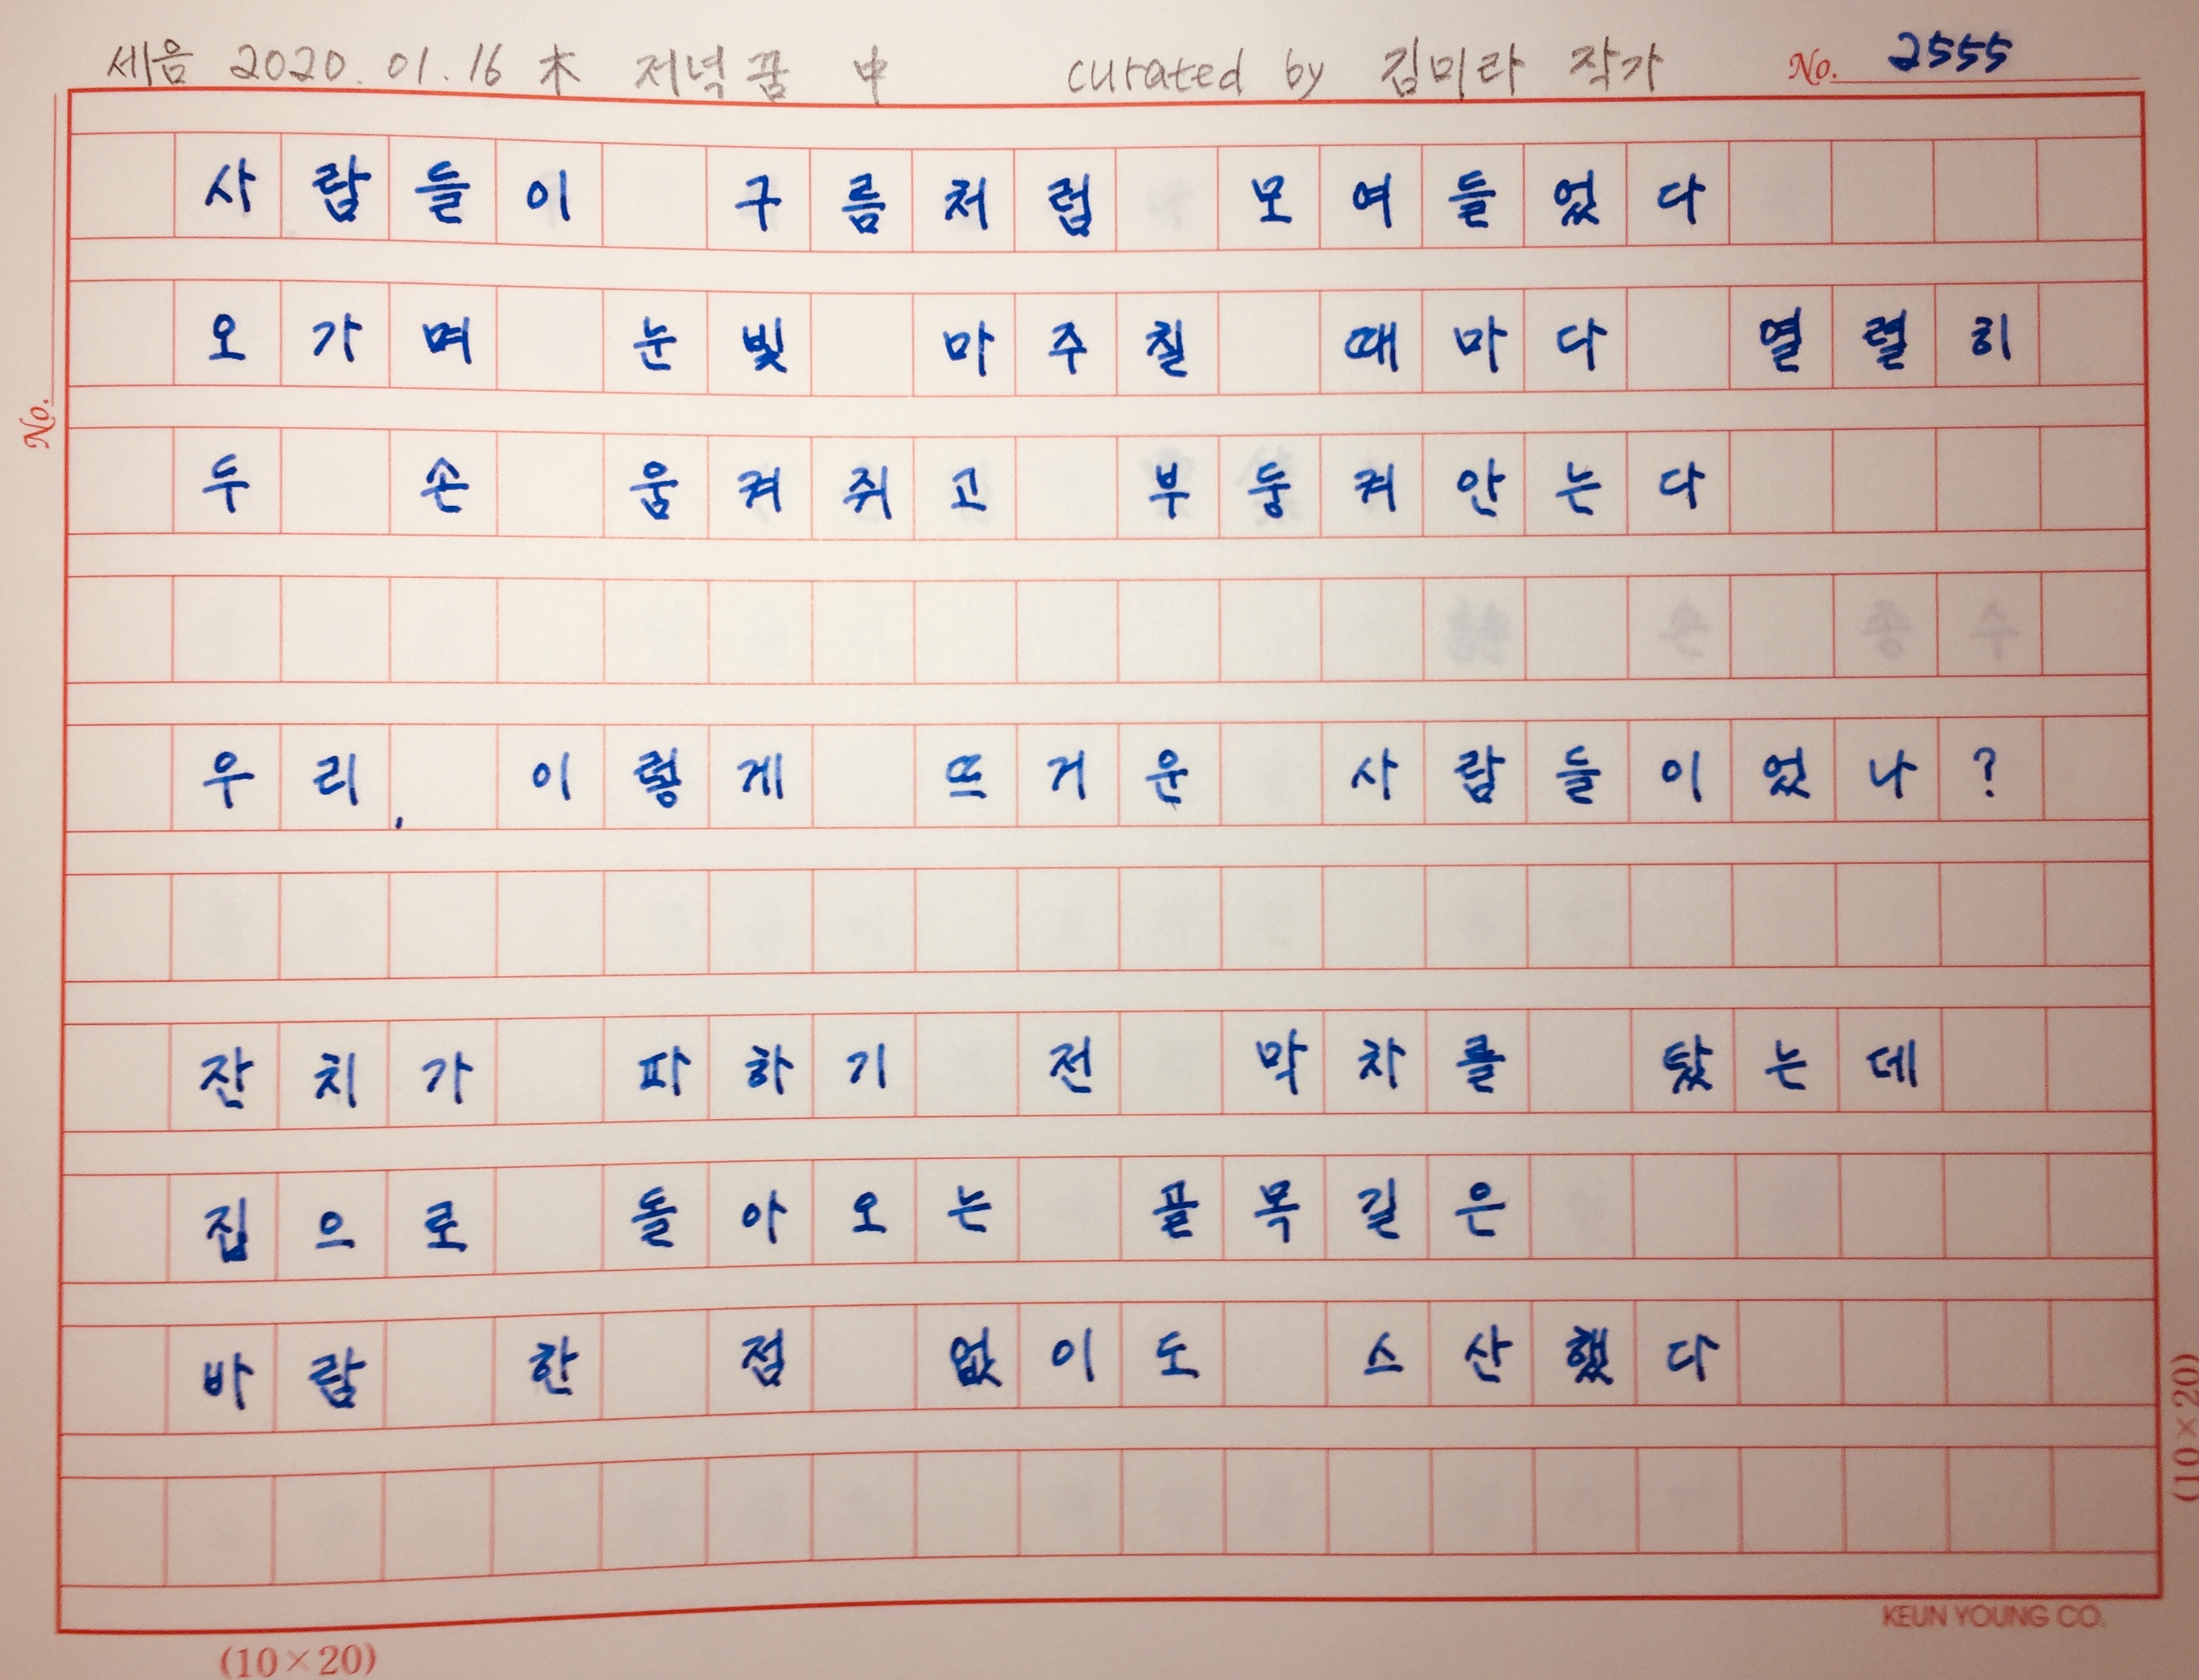 세음 2020.01.16 木 저녁꿈 中 curated by 김미라 작가 No. 2555
사람들이 구름처럼 모여들었다
오가며 눈빛 마주칠 때마다 열렬히
두 손 움켜쥐고 부둥켜안는다
No.
우리, 이렇게 뜨거운 사람들이었나?
잔치가 파하기 전 막차를 탔는데
집으로 돌아오는 골목길은
바람 한 점 없이도 스산했다
(10×20)
KEUN YOUNG CO.
(10×20)